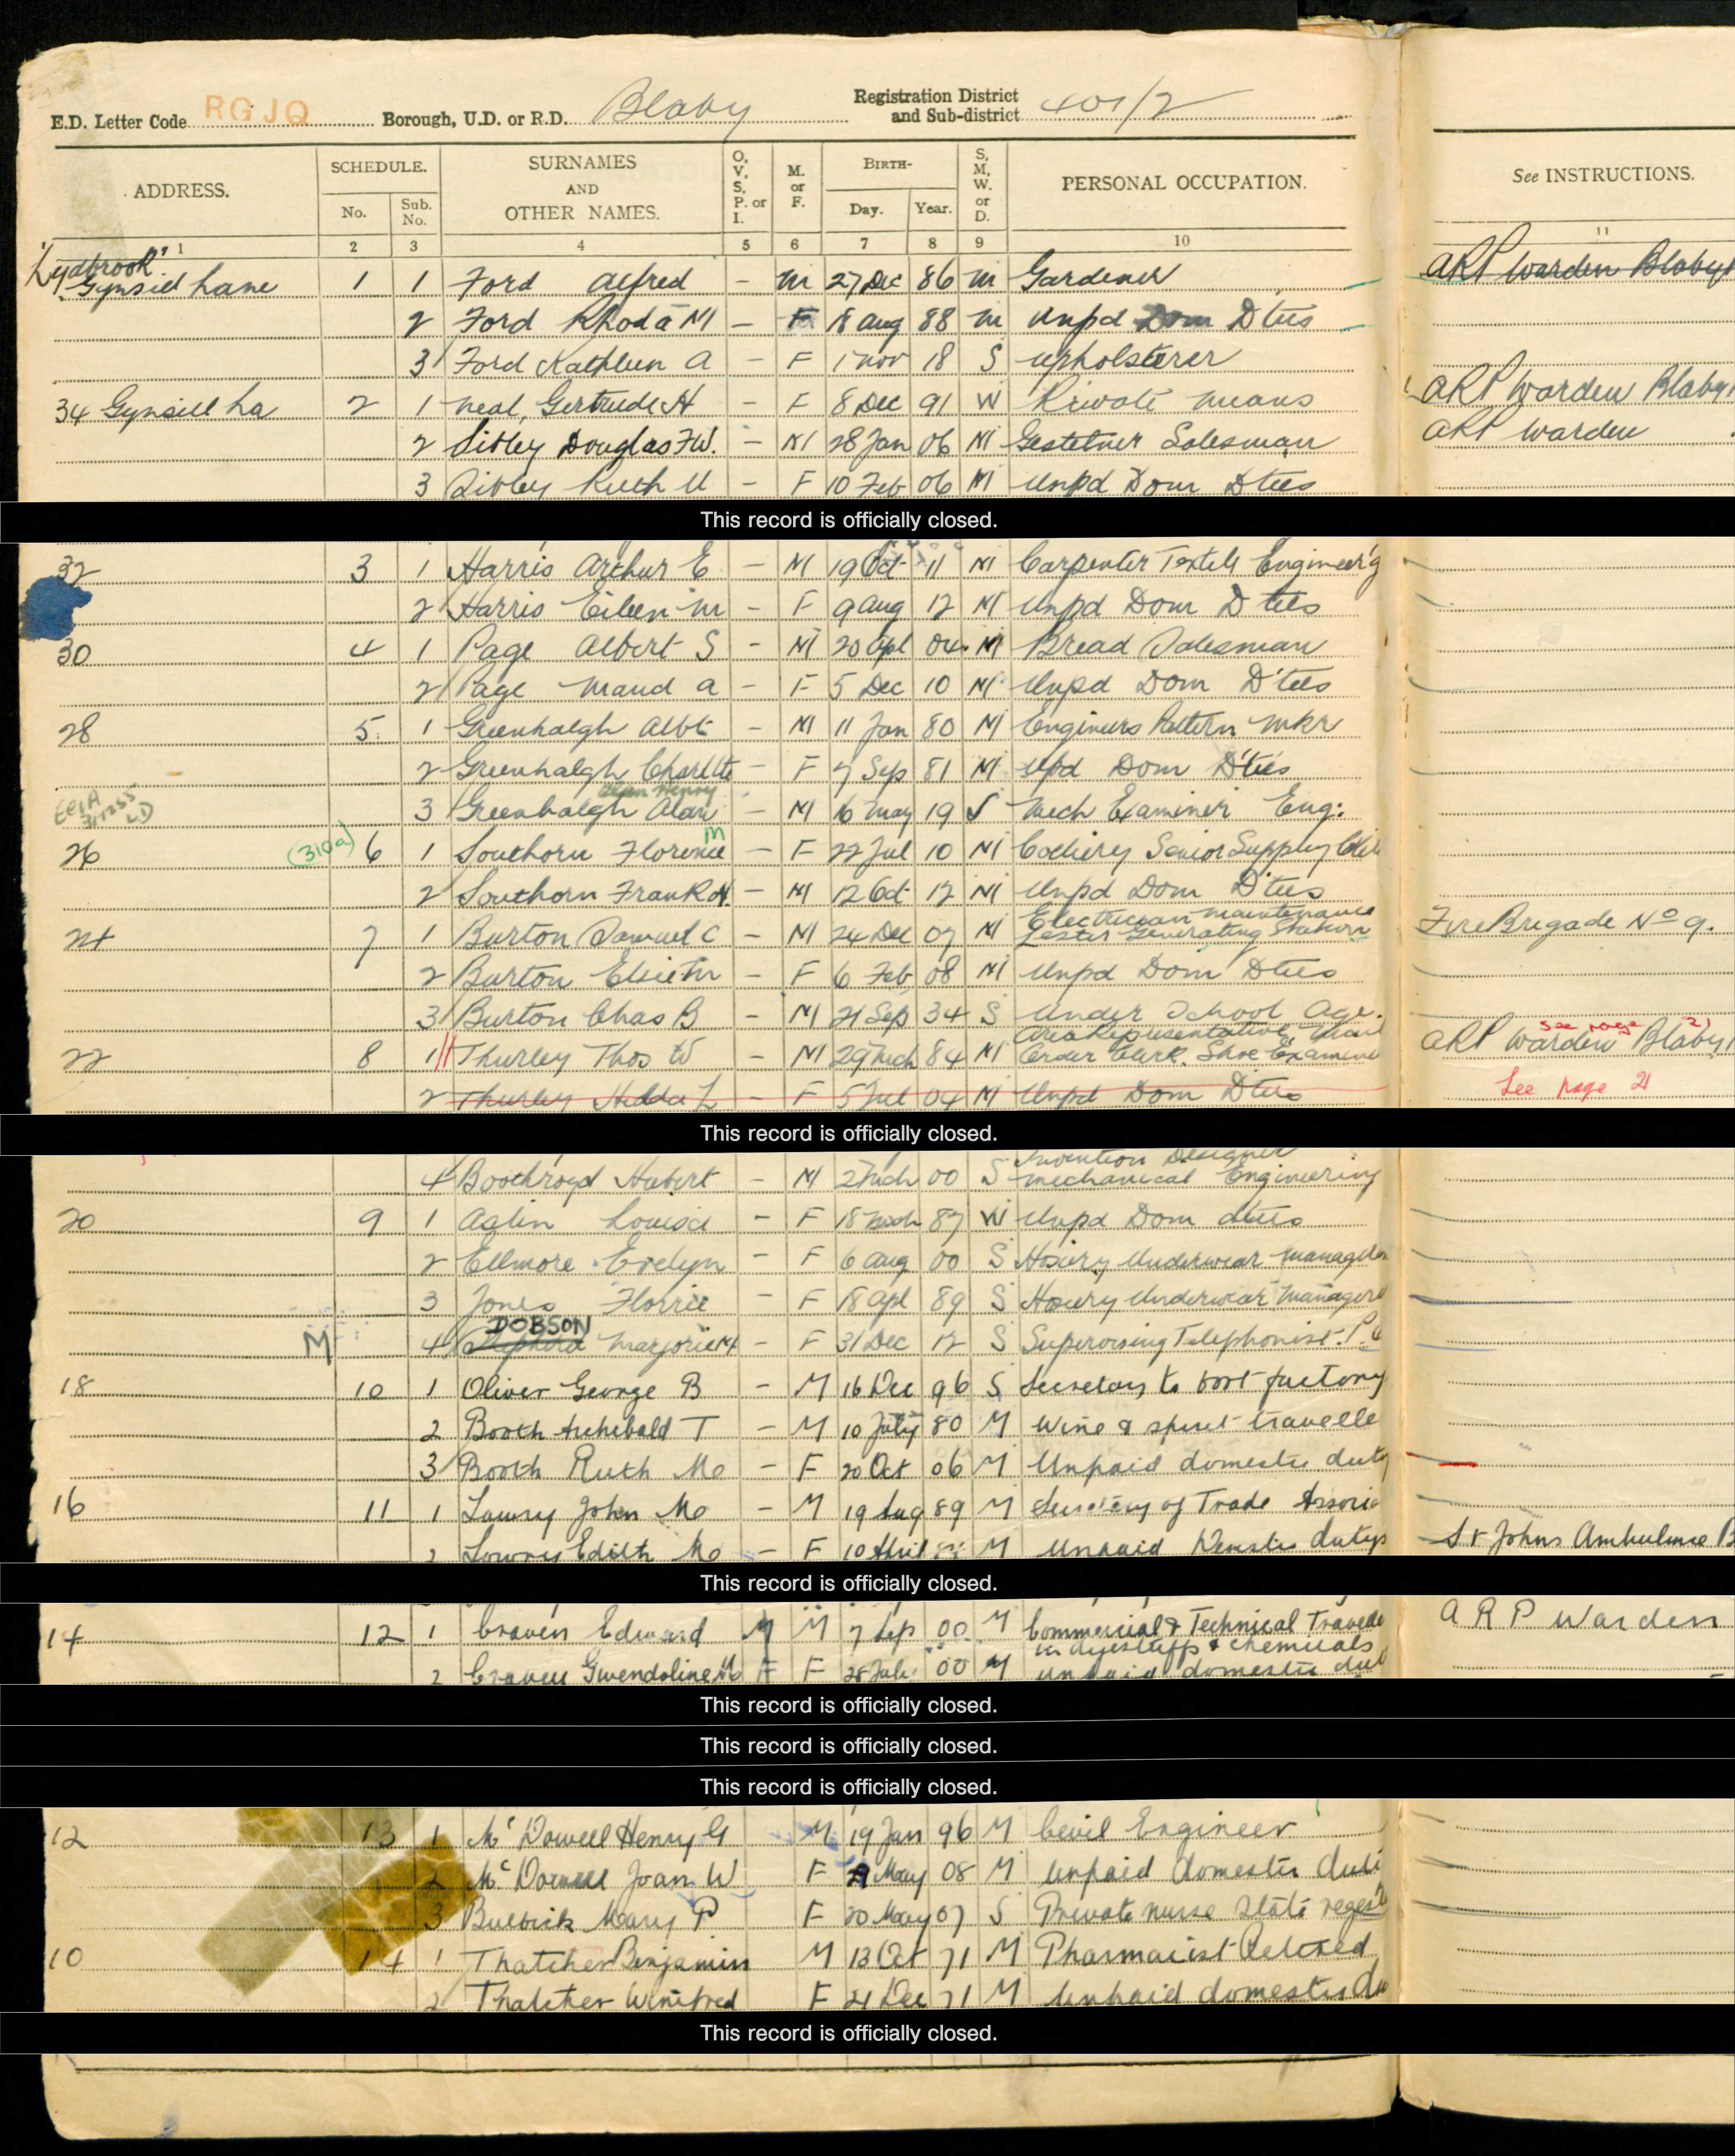 E.D. Letter Code RGJQ Borough, U.D. or R.D. Blaby Registration District and Sub-district 401/2
ADDRESS. SCHEDULE. No. Sub. No. SURNAMES AND OTHER NAMES. O, V, S, P. or I. M. or F. BIRTH- Day. Year. S, M, W. or D. PERSONAL OCCUPATION. See INSTRUCTIONS.
1 2 3 4 5 6 7 8 9 10 11
'Lydbrook'
Gynsill Lane 1 1 Ford Alfred - M 27 Dec 86 M Gardener ARP Warden Blaby
2 Ford Rhoda M - F 18 Aug 88 M Unpd Dom Dties
3 Ford Kathleen A - F 1 Nov 18 S Upholsterer
34 Gynsill La 2 1 Neal, Gertrude H - F 8 Dec 91 W Private means ARP Warden Blaby
2 Sibley Douglas F.W. - M 28 Jan 06 M Gestetner Salesman ARP Warden
3 Sibley Ruth U - F 10 Feb 06 M Unpd Dom Dties
This record is officially closed.
32 3 1 Harris Arthur E - M 19 Oct 11 M Carpenter Textile Engineer'g
2 Harris Eileen M - F 9 Aug 12 M Unpd Dom Dties
30 4 1 Page Albert S - M 20 Apl 04 M Bread Salesman
2 Page Maud A - F 5 Dec 10 M Unpd Dom D'ties
28 5 1 Greenhalgh Albt - M 11 Jan 80 M Engineers Pattern Mkr
2 Greenhalgh Charltte - F 7 Sep 81 M Upd Dom D'ties
3 Greenhalgh Alan - M 16 May 19 S Mech Examiner Eng:
26 (310a) 6 1 Southorn Florence M - F 22 Jul 10 M Senior Supply
2 Southorn Frank H. - M 12 Oct 12 M Unpd Dom D'ties
24 7 1 Burton Samuel C - M 24 Dec 07 M Electrician Maintenance Lester Generating Station Fire Brigade No 9.
2 Burton Elsie M - F 6 Feb 08 M Unpd Dom Dties
3 Burton Chas B - M 21 Sep 34 S Under School Age.
22 8 1 Thurley Thos W - M 29 Mch 84 M Area Representative Order Clerk. Shoe Examine ARP Warden Blaby see page 21
2 Thurley Hedda L - F 5 Jul 04 M Unpd Dom Dties See page 21
This record is officially closed.
4 Boothroyd Hubert - M 2 Mch 00 S Invention Designer Mechanical Engineering
20 9 1 Louisa - F 18 Mch 87 W Unpd Dom dties
2 Ellmore Evelyn - F 6 Aug 00 S Hosiery Underwear Manageress
3 Jones Florrie - F 18 Apl 89 S Hosiery Underwear Manageress
M 4 DOBSON Shepherd Marjorie M - F 31 Dec 12 S Supervising Telephonist.
18 10 1 Oliver George B - M 16 Dec 96 S Secretary to boot factory
2 Booth Archibald T - M 10 July 80 M Wine & spirit travelle
3 Booth Ruth Mc - F 20 Oct 06 M Unpaid domestic duty
16 11 1 Lowry John Mc - M 19 Aug 89 M Secretary of Trade Associa
2 Lowry Edith Mc - F 10 April M Unpaid Domestic dutys St Johns Ambulance B
This record is officially closed.
14 12 1 Craven Edward M M 7 Sep 00 M Commercial & Technical Travelle in dyestuffs & chemicals A R P Warden
2 Craven Gwendoline M F F 28 July 00 M unpaid domestic dut
This record is officially closed.
This record is officially closed.
This record is officially closed.
12 13 1 McDowell Henry G M 19 Jan 96 M Civil Engineer
2 McDowell Joan W F May 08 M Unpaid domestic duti
3 Bulbick Mary P F 20 May 07 S Private nurse State regest
10 14 1 Thatcher Benjamin M 13 Oct 71 M Pharmacist Retired
2 Thatcher Winifred F 21 Dec 71 M Unpaid domestic du
This record is officially closed.